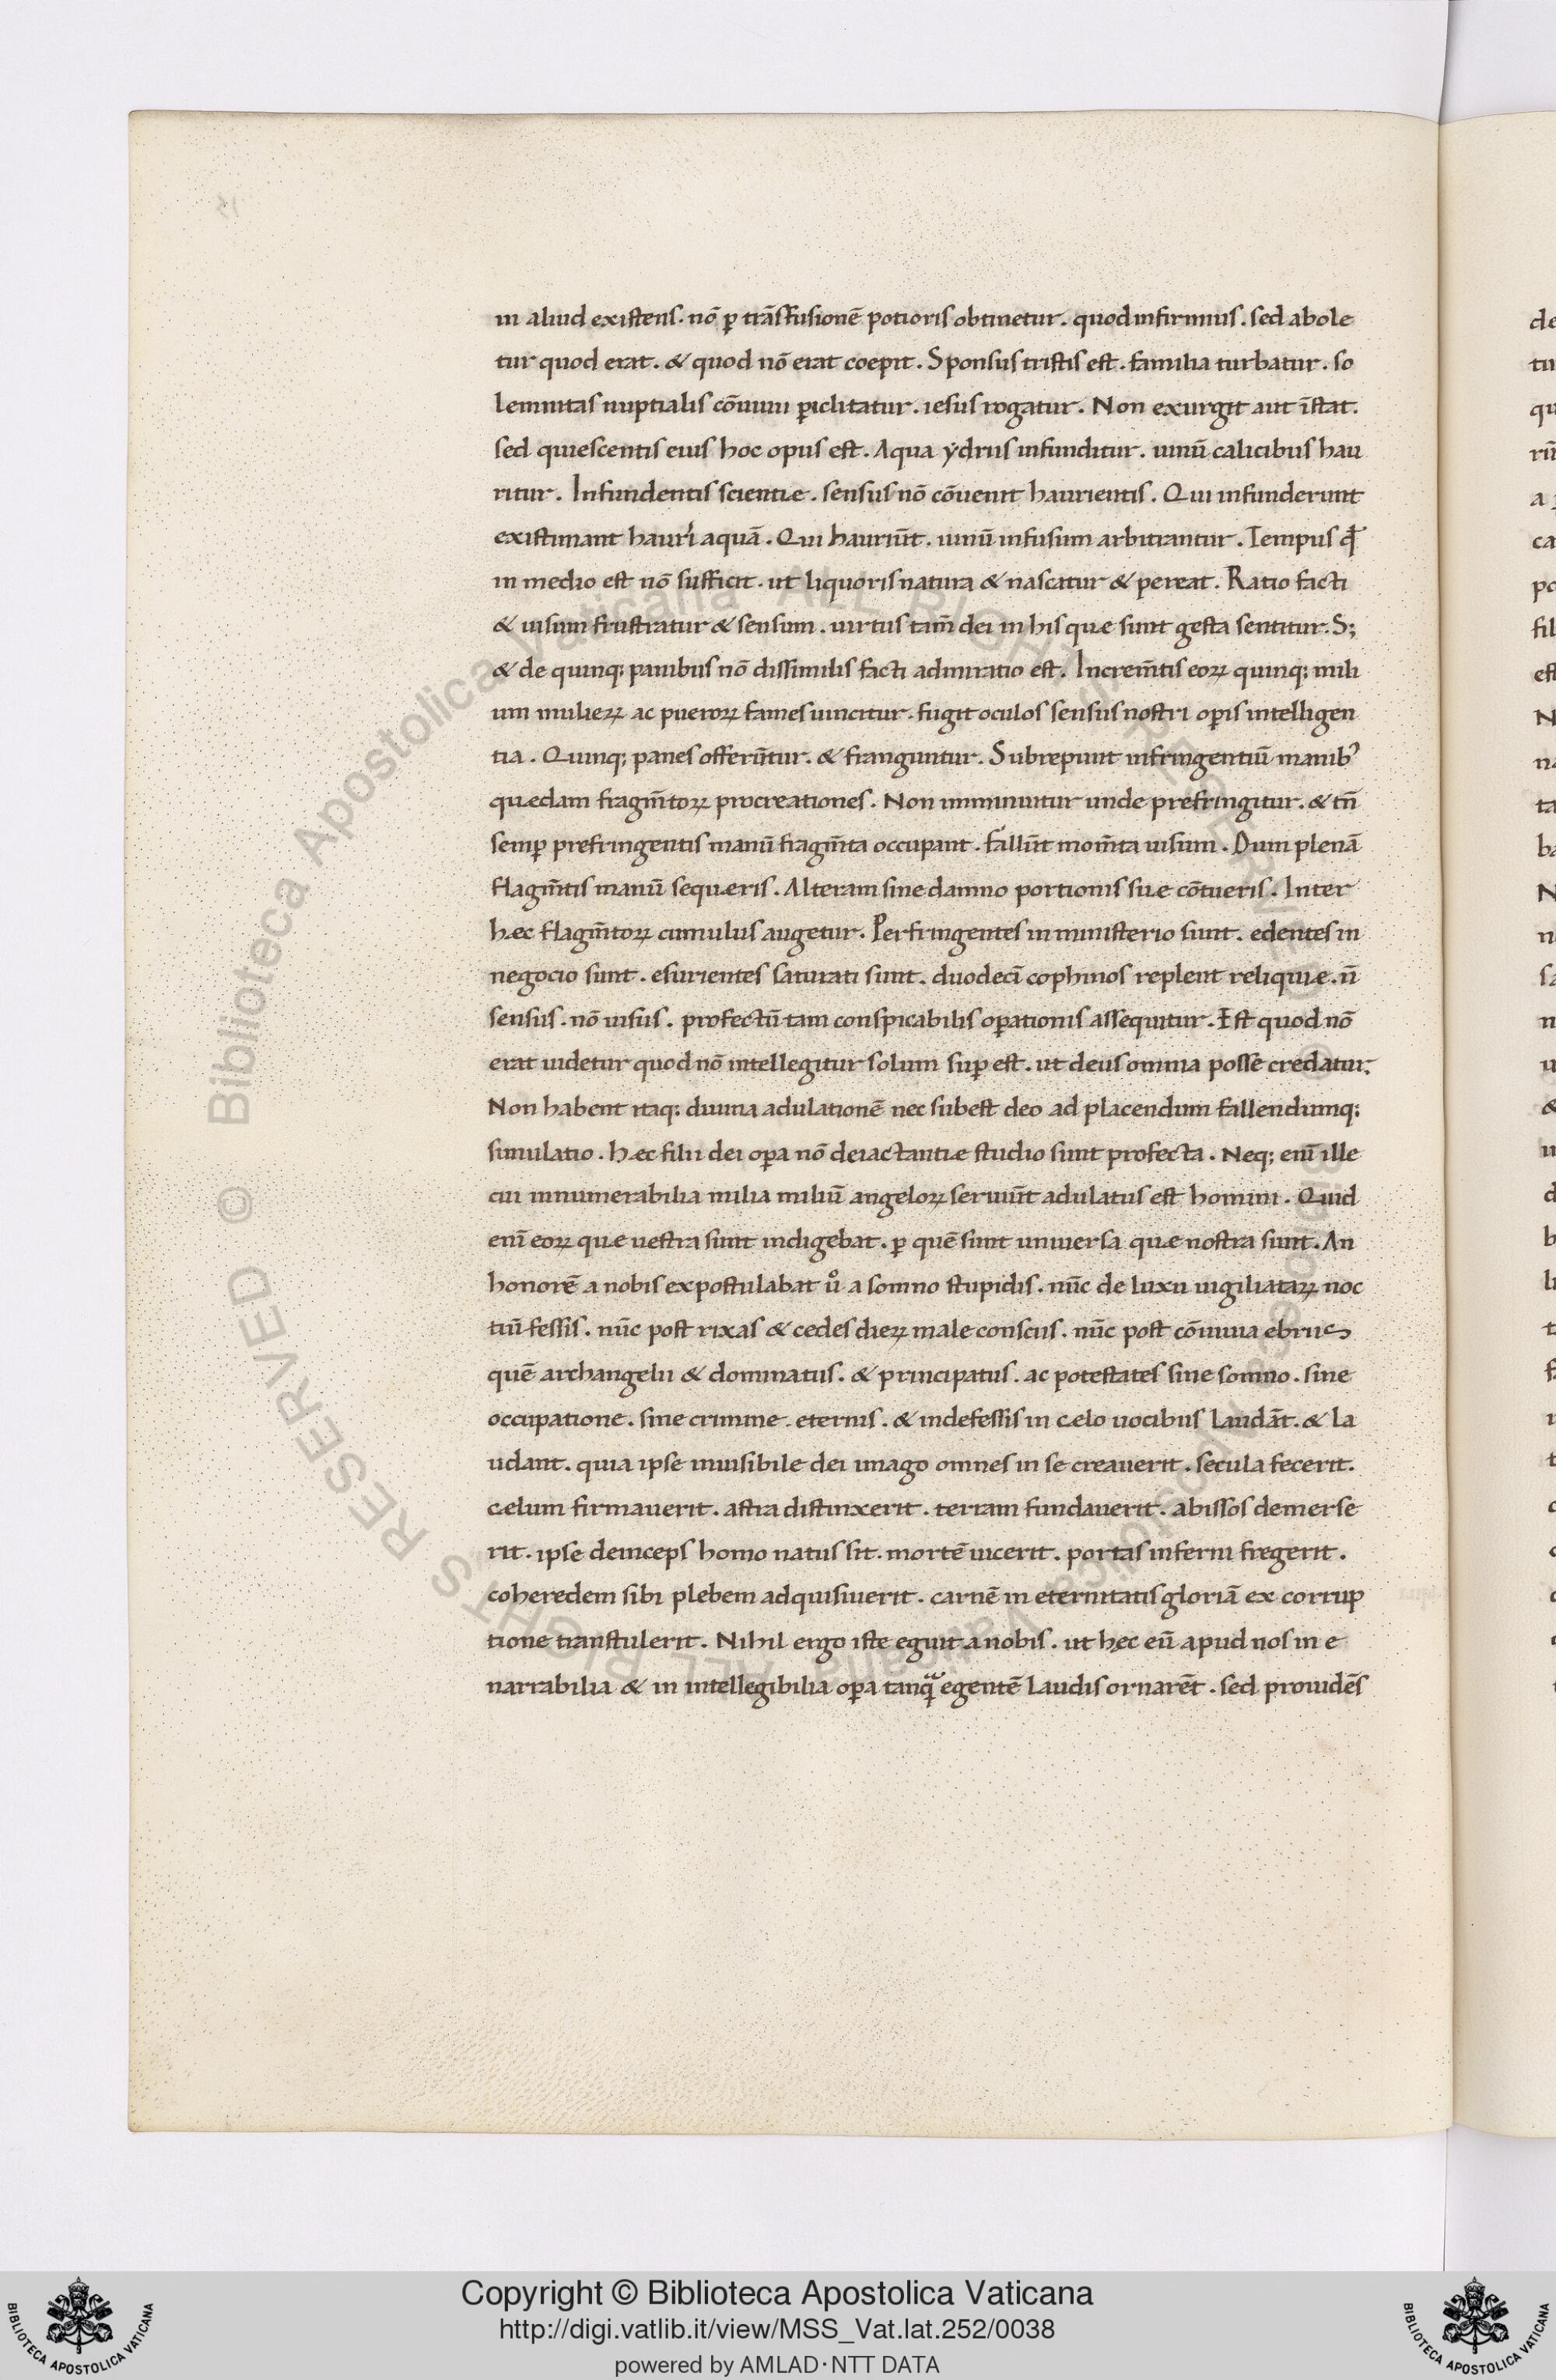 in aliud existens. nō ꝑ trāsfusionē potioris obtinetur. quod infirmius. sed abole
tur quod erat. & quod nō erat coepit. Sponsus tristis est. familia turbatur. so
lemnitas nuptialis cōuiuii ꝑiclitatur. iesus rogatur. Non exurgit aut īstat.
sed quiescentis eius hoc opus est. Aqua ẏdriis infunditur. uinū calicibus hau
ritur. Infundentis scientiæ. sensus nō cōuenit haurientis. Qui infunderunt
existimant hauri aquā. Qui hauriūt. uinū infusum arbitrantur. Tempus qđ
in medio est nō sufficit. ut liquoris natura & nascatur & pereat. Ratio facti
& uisum frustratur & sensum. uirtus tam̄ dei in his que sunt gesta sentitur. S;
& de quinq; panibus nō dissimilis facti admiratio est. Increm̄tis eoꝝ quinq; mili
um mulieꝝ ac pueroꝝ fames uincitur. fugit oculos sensus nostri oꝑis intelligen
tia. Quinq; panes offerūtur. & franguntur. Subrepunt infringentiū manibꝰ
quædam fragm̄toꝝ procreationes. Non imminuitur unde prefringitur. & tn̄
semꝑ prefringentis manū fragm̄ta occupant. fallūt mom̄ta uisum. Dum plenā
flagm̄tis manū sequæris. Alteram sine damno portionis suæ cōtueris. Inter
hæc flagm̄toꝝ cumulus augetur. Perfringentes in ministerio sunt. edentes in
negocio sunt. esurientes saturati sunt. duodecī cophinos replent reliquiæ. ū
sensus. nō uisus. profectū tam conspicabilis oꝑationis assequitur. Est quod nō
erat uidetur quod nō intellegitur solum suꝑ est. ut deus omnia posse credatur.
Non habent itaq; diuina adulationē nec subest deo ad placendum fallendumq;
simulatio. hæc filii dei oꝑa nō de iactantiæ studio sunt profecta. Neq; enī ille
cui innumerabilia milia miliū angeloꝝ seruiūt adulatus est homini. Quid
enī eoꝝ quæ uestra sunt indigebat. ꝑ quē sunt uniuersa quæ nostra sunt. An
honorē a nobis expostulabat uͦ a somno stupidis. nūc de luxu uigiliataꝝ noc
tiū fessis. nūc post rixas & cedes dieꝝ male consciis. nūc post cōuiuia ebriis
quē archangelii & dominatus. & principatus. ac potestates sine somno. sine
occupatione. sine crimine. eternis. & indefessis in cælo uocibus laudāt. & la
udant. quia ipse inuisibile dei imago omnes in se creauerit. secula fecerit.
cælum firmauerit. astra distinxerit. terram fundauerit. abissos demerse
rit. ipse deinceps homo natus sit. mortē uicerit. portas inferni fregerit.
coheredem sibi plebem adquisiuerit. carnē in eternitatis gloriā ex corrup
tione transtulerit. Nihil ergo iste eguit a nobis. ut hęc eū apud nos in e
narrabilia & in intellegibilia oꝑa tanqᷓ egentē laudis ornarēt. sed prouidēs
© Biblioteca Apostolica Vaticana ALL RIGHTS RESERVED © Biblioteca Apostolica Vaticana ALL RIGHTS RESERVED
Copyright © Biblioteca Apostolica Vaticana
http://digi.vatlib.it/view/MSS_Vat.lat.252/0038
powered by AMLAD·NTT DATA
BIBLIOTECA APOSTOLICA VATICANA
BIBLIOTECA APOSTOLICA VATICANA